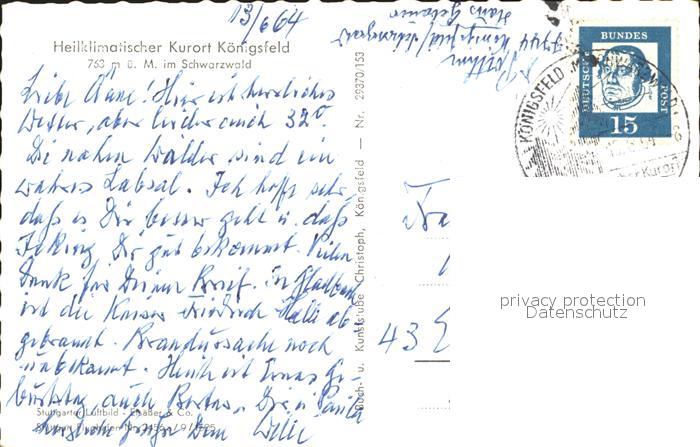 13/6 64
Heilklimatischer Kurort Königsfeld
763 m ü. M. im Schwarzwald
Liebe Änne! Hier ist herrliches
Wetter, aber leider auch 32°.
Die nahen Wälder sind ein
wahres Labsal. Ich hoffe sehr,
daß es Dir besser geht u. daß
Dir gut bekommt. Vielen
Dank für Deinen Brief. In Gladbeck
ist die Kaiser Friedrich Halle ab-
gebrannt. Brandursache noch
unbekannt. Heute ist Ge-
burtstag, auch
herzliche Grüße Dein Willi
Stuttgarter Luftbild - Elsäßer & Co.
Buch- u. Kunststube Christoph, Königsfeld — Nr. 29370/153
Haus
7744 Königsfeld/Schwarzwald
DEUTSCHE BUNDESPOST
15
KÖNIGSFELD
Kurort
43
privacy protection
Datenschutz